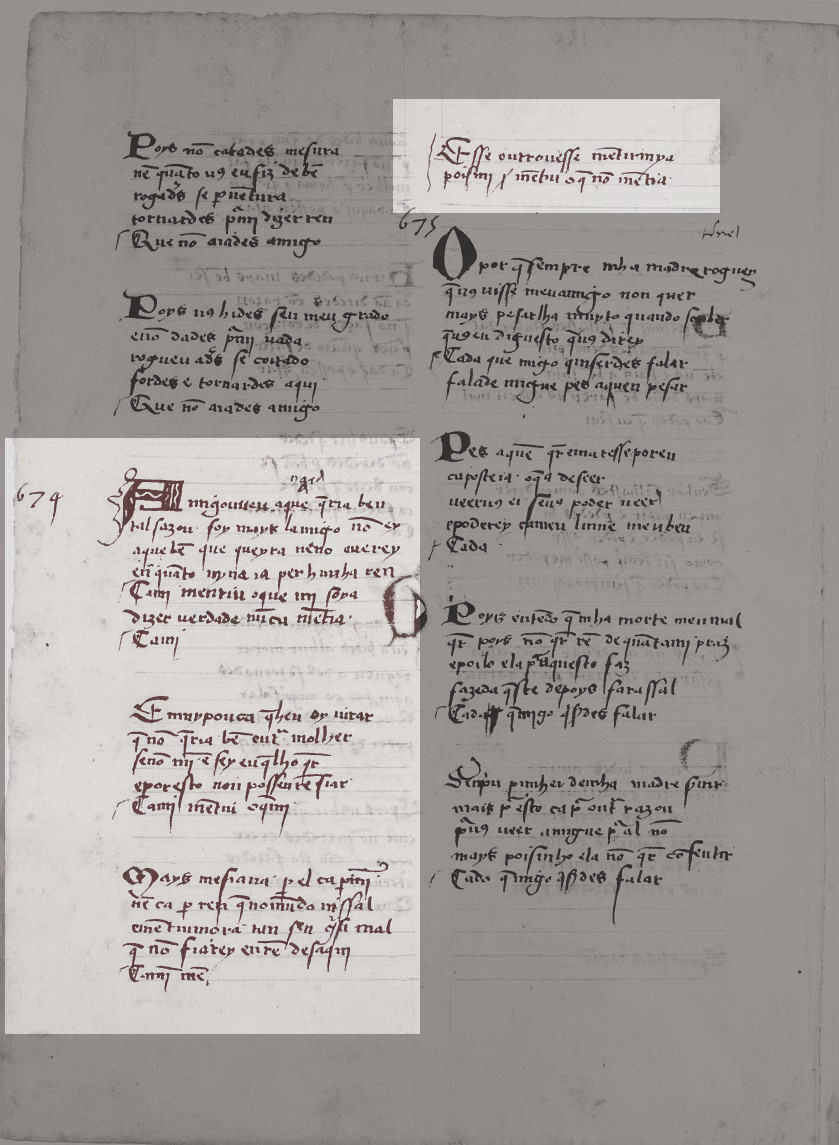 Poys nō catades mesura
nē quāto uꝯ eu fiz de bē
rogad's se p uētura
tornardes pᵃ mi dizer ren
Que nō aiades amigo
Poys uꝯ hides sen meu grado
enō dades pᵃ mi nada
rogueu ad's se coitado
fordes e tornardes aqui
Que nō aiades amigo
674
migo uueu aque q̄ria ben
tal sazou foy mays lamigo nō ey
aque bē que queyra neno auerey
en quāto uyua ia per hunha ren
Cami mentiu oque mi soya
dizer verdade nūca mētia
Cami
E muy pouca q̄ heu oy uirar
q̄ nō q̄ria bē outᵃ molher
senō mi e sey eu q̄ lho q̄r
epor esto non posseu re fiar
Cami mētiu oq̄ mi
Mays mesiaua p el ca p mi
nē ca p ren que no mūdo nissal
ementiu mora tan sen q̄ si mal
q̄ nō fiarey en rē desaqui
Cami mē
Esse outrouesse mētirmya
poismi mētiu oq̄ nō mētia
675
O por q̄ sempre mha madre roguey
q̄ uꝯ uisse meu amigo non quer
mays pesar lha muyto quando souber
q̄ uꝯ eu digu esto q̄ uꝯ direy
Cada que migo quiserdes falar
falade migue pes aquen pesar
Pes aque q̄r e matesse por en
ca posteia oq̄ a deseer
ueeruꝯ ei seuꝯ poder ueer
epoderey ca meu lume meu ben
Cada
Poys entēdo q̄ mha morte meu mal
q̄r poys nō q̄r rē de quātami praz
epoilo ela pᵃ aquesto faz
fazeda q̄ste depoys fara ssal
Cada q̄ migo q̄s des falar
per mha madre
mais p esto ca pᵃ outᵃ razou
pᵃ uꝯ ueer amigue pᵃ al nō
mays poisinho ela nō q̄r consentir
Cado q̄ migo q̄s des falar